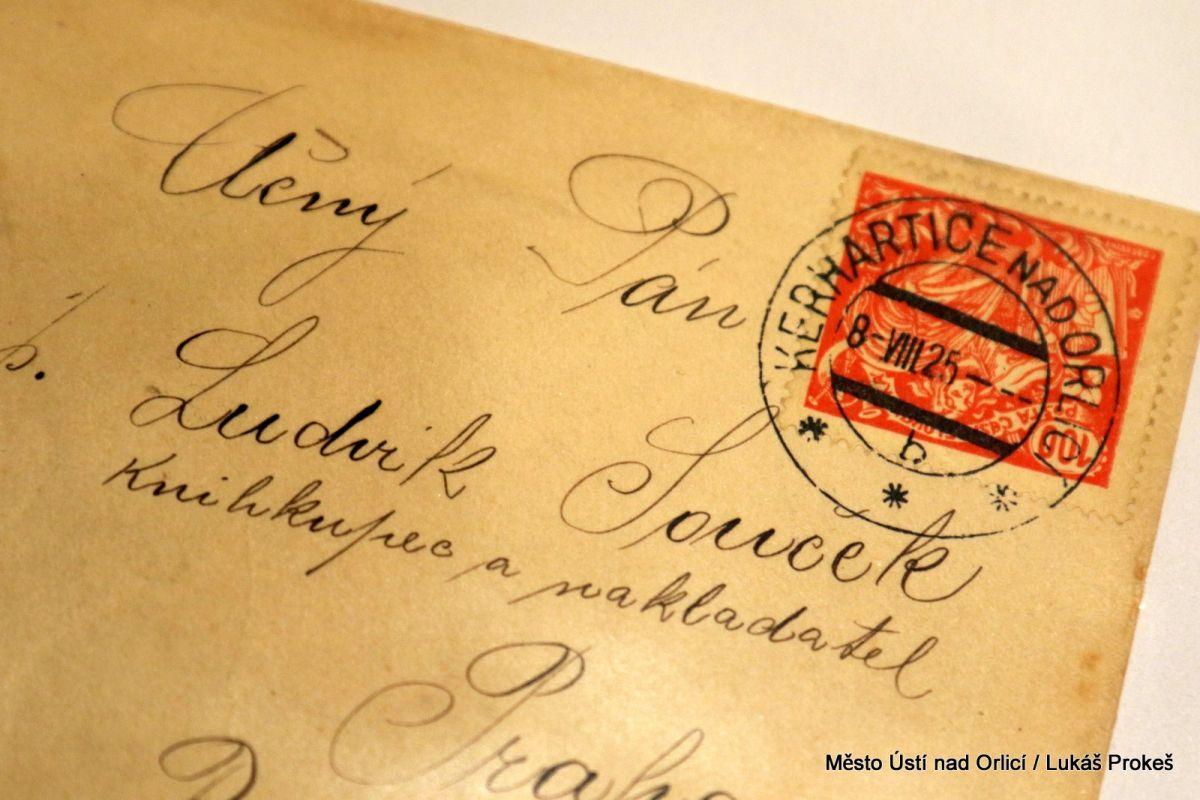 Učený Pán
Ludvik Souček
Knihkupec a nakladatel
Praha
KERHARTICE NAD ORLICÍ
8-VIII.25-
b
Město Ústí nad Orlicí / Lukáš Prokeš